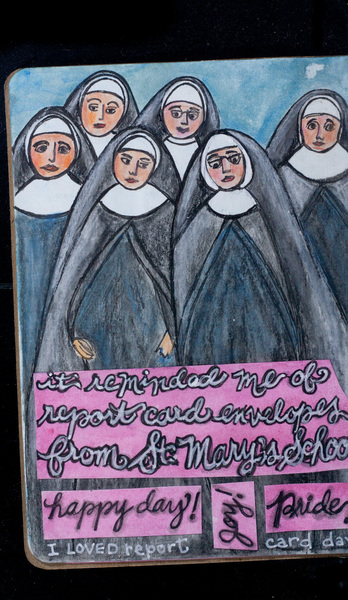 it reminded me of
report card envelopes
from St. Mary's Schoo
happy day! joy! Pride
I LOVED report card day